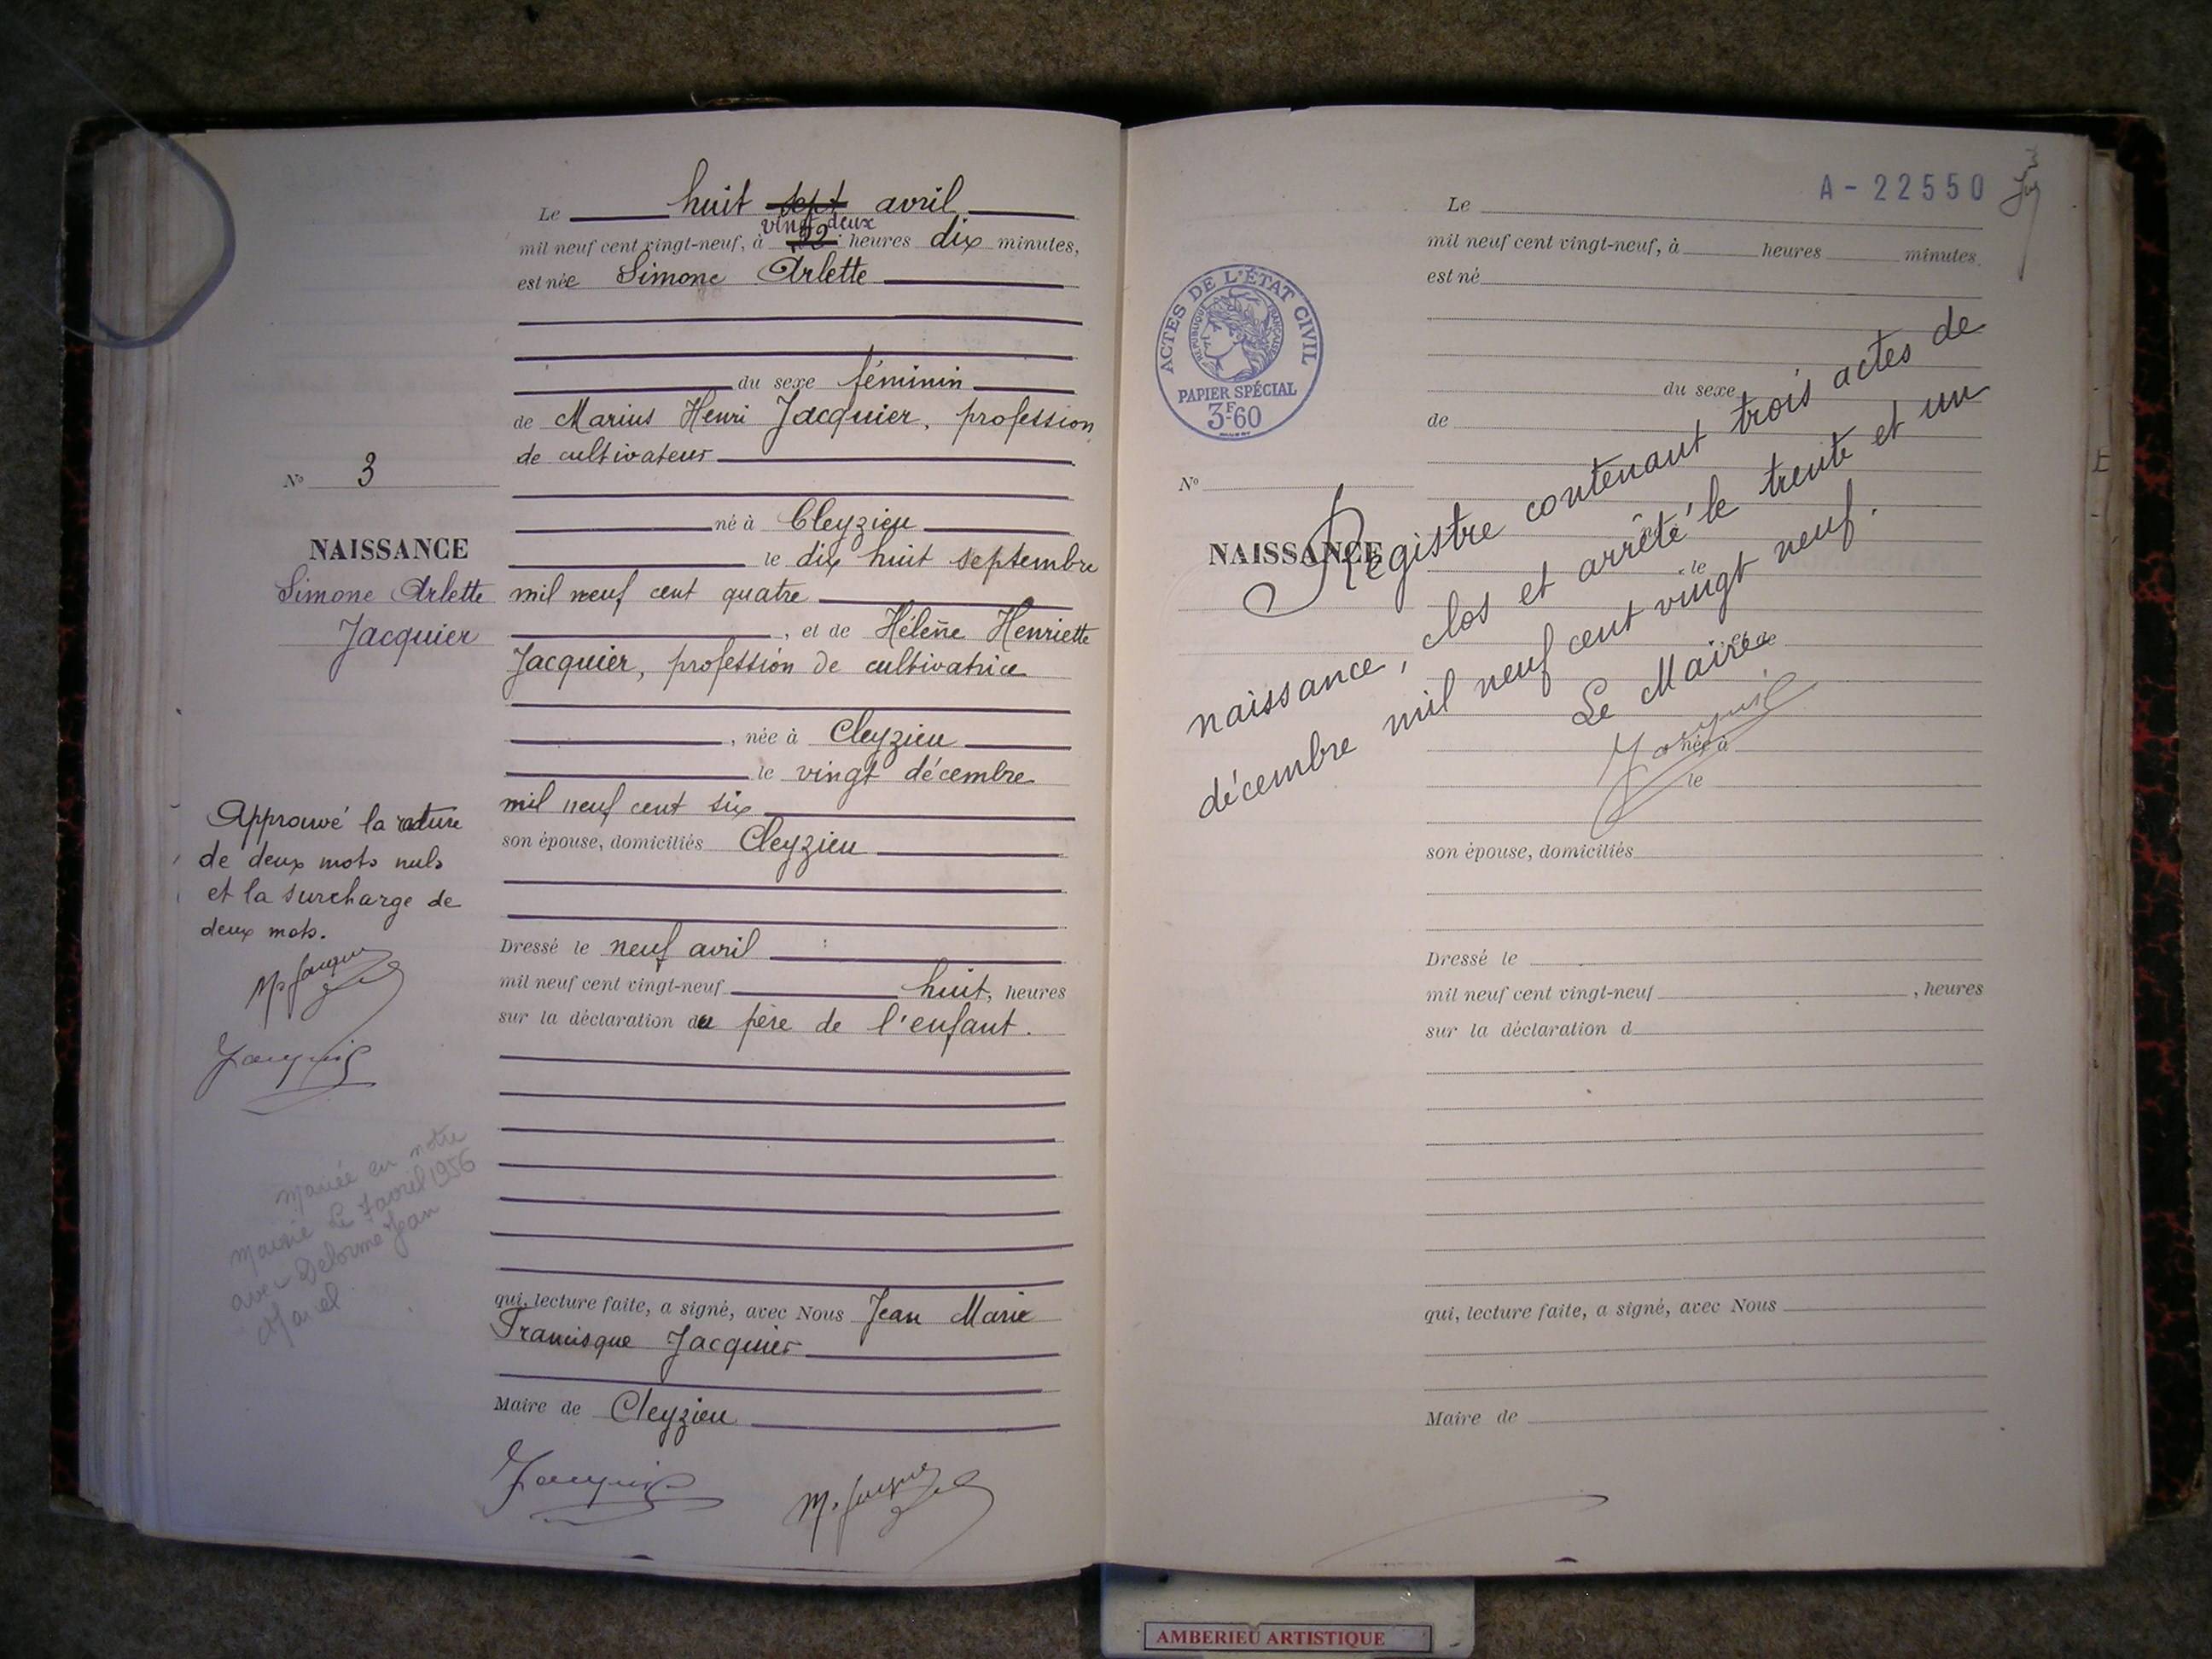 Le huit sept avril
vingt deux
mil neuf cent vingt-neuf, à 22 heures dix minutes,
est née Simone Arlette
du sexe féminin
de Marius Henri Jacquier, profession
de cultivateur
N° 3
né à Cleyzieu
NAISSANCE
le dix huit septembre
Simone Arlette
Jacquier
mil neuf cent quatre
, et de Hélène Henriette
Jacquier, profession de cultivatrice
, née à Cleyzieu
le vingt décembre
mil neuf cent six
son épouse, domiciliés Cleyzieu
Approuvé la rature
de deux mots nuls
et la surcharge de
deux mots.
Dressé le neuf avril
mil neuf cent vingt-neuf huit, heures
sur la déclaration du père de l'enfant.
Mariée en notre
Mairie le 7 avril 1956
avec Delorme Jean
Marcel
qui, lecture faite, a signé, avec Nous Jean Marie
Francisque Jacquier
Maire de Cleyzieu
A-22550
Le
mil neuf cent vingt-neuf, à heures minutes
est né
ACTES DE L'ÉTAT CIVIL
RÉPUBLIQUE FRANÇAISE
PAPIER SPÉCIAL
3F60
du sexe
de
N°
NAISSANCE
le
et de
née à
le
Registre contenant trois actes de
naissance, clos et arrêté le trente et un
décembre mil neuf cent vingt neuf.
Le Maire
son épouse, domiciliés
Dressé le
mil neuf cent vingt-neuf , heures
sur la déclaration d
qui, lecture faite, a signé, avec Nous
Maire de
AMBERIEU ARTISTIQUE